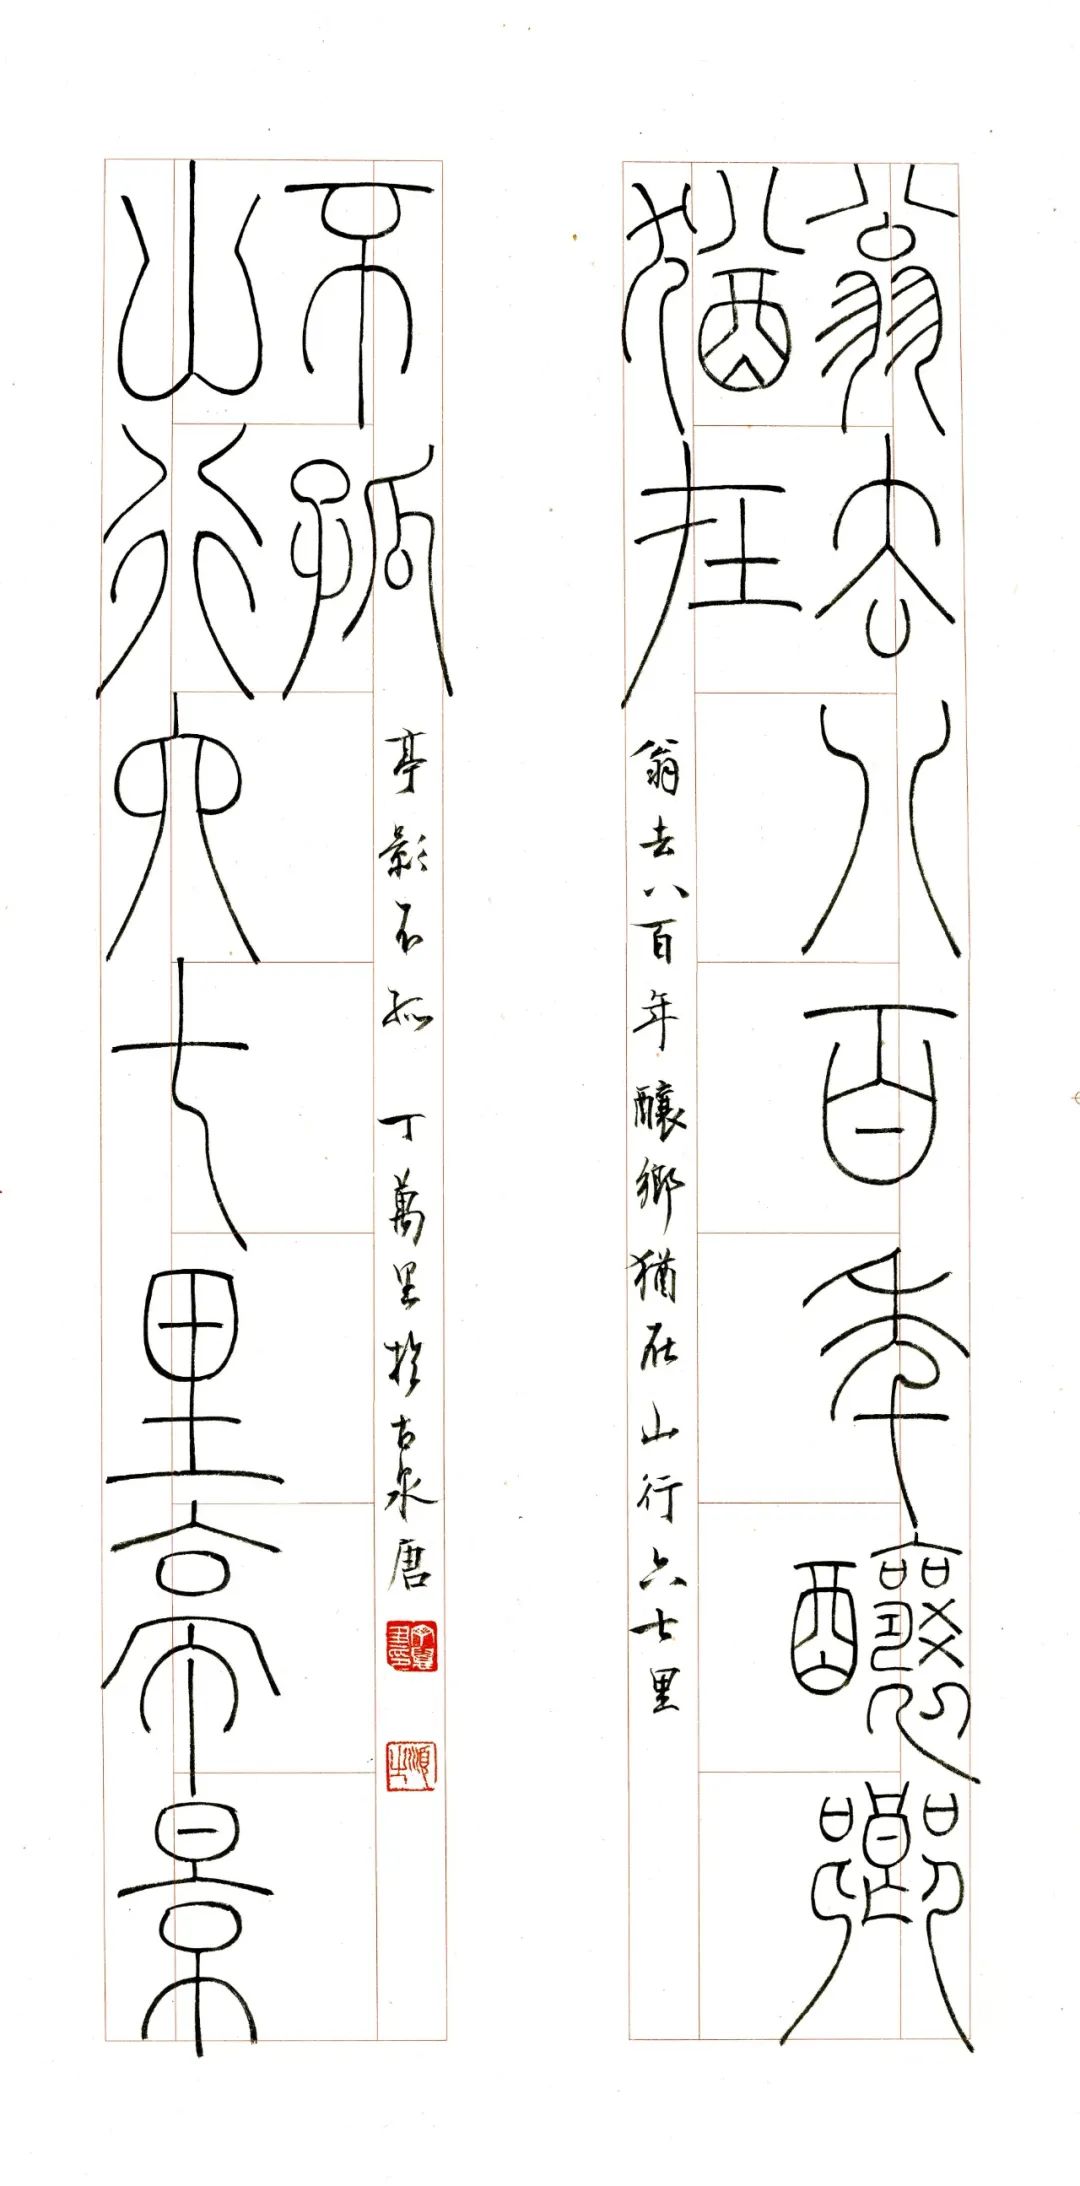 翁去八百年釀鄉
猶在
翁去八百年釀鄉猶在山行六七里
山行六七里亭景
不孤
亭影不孤 丁萬里於古泉唐